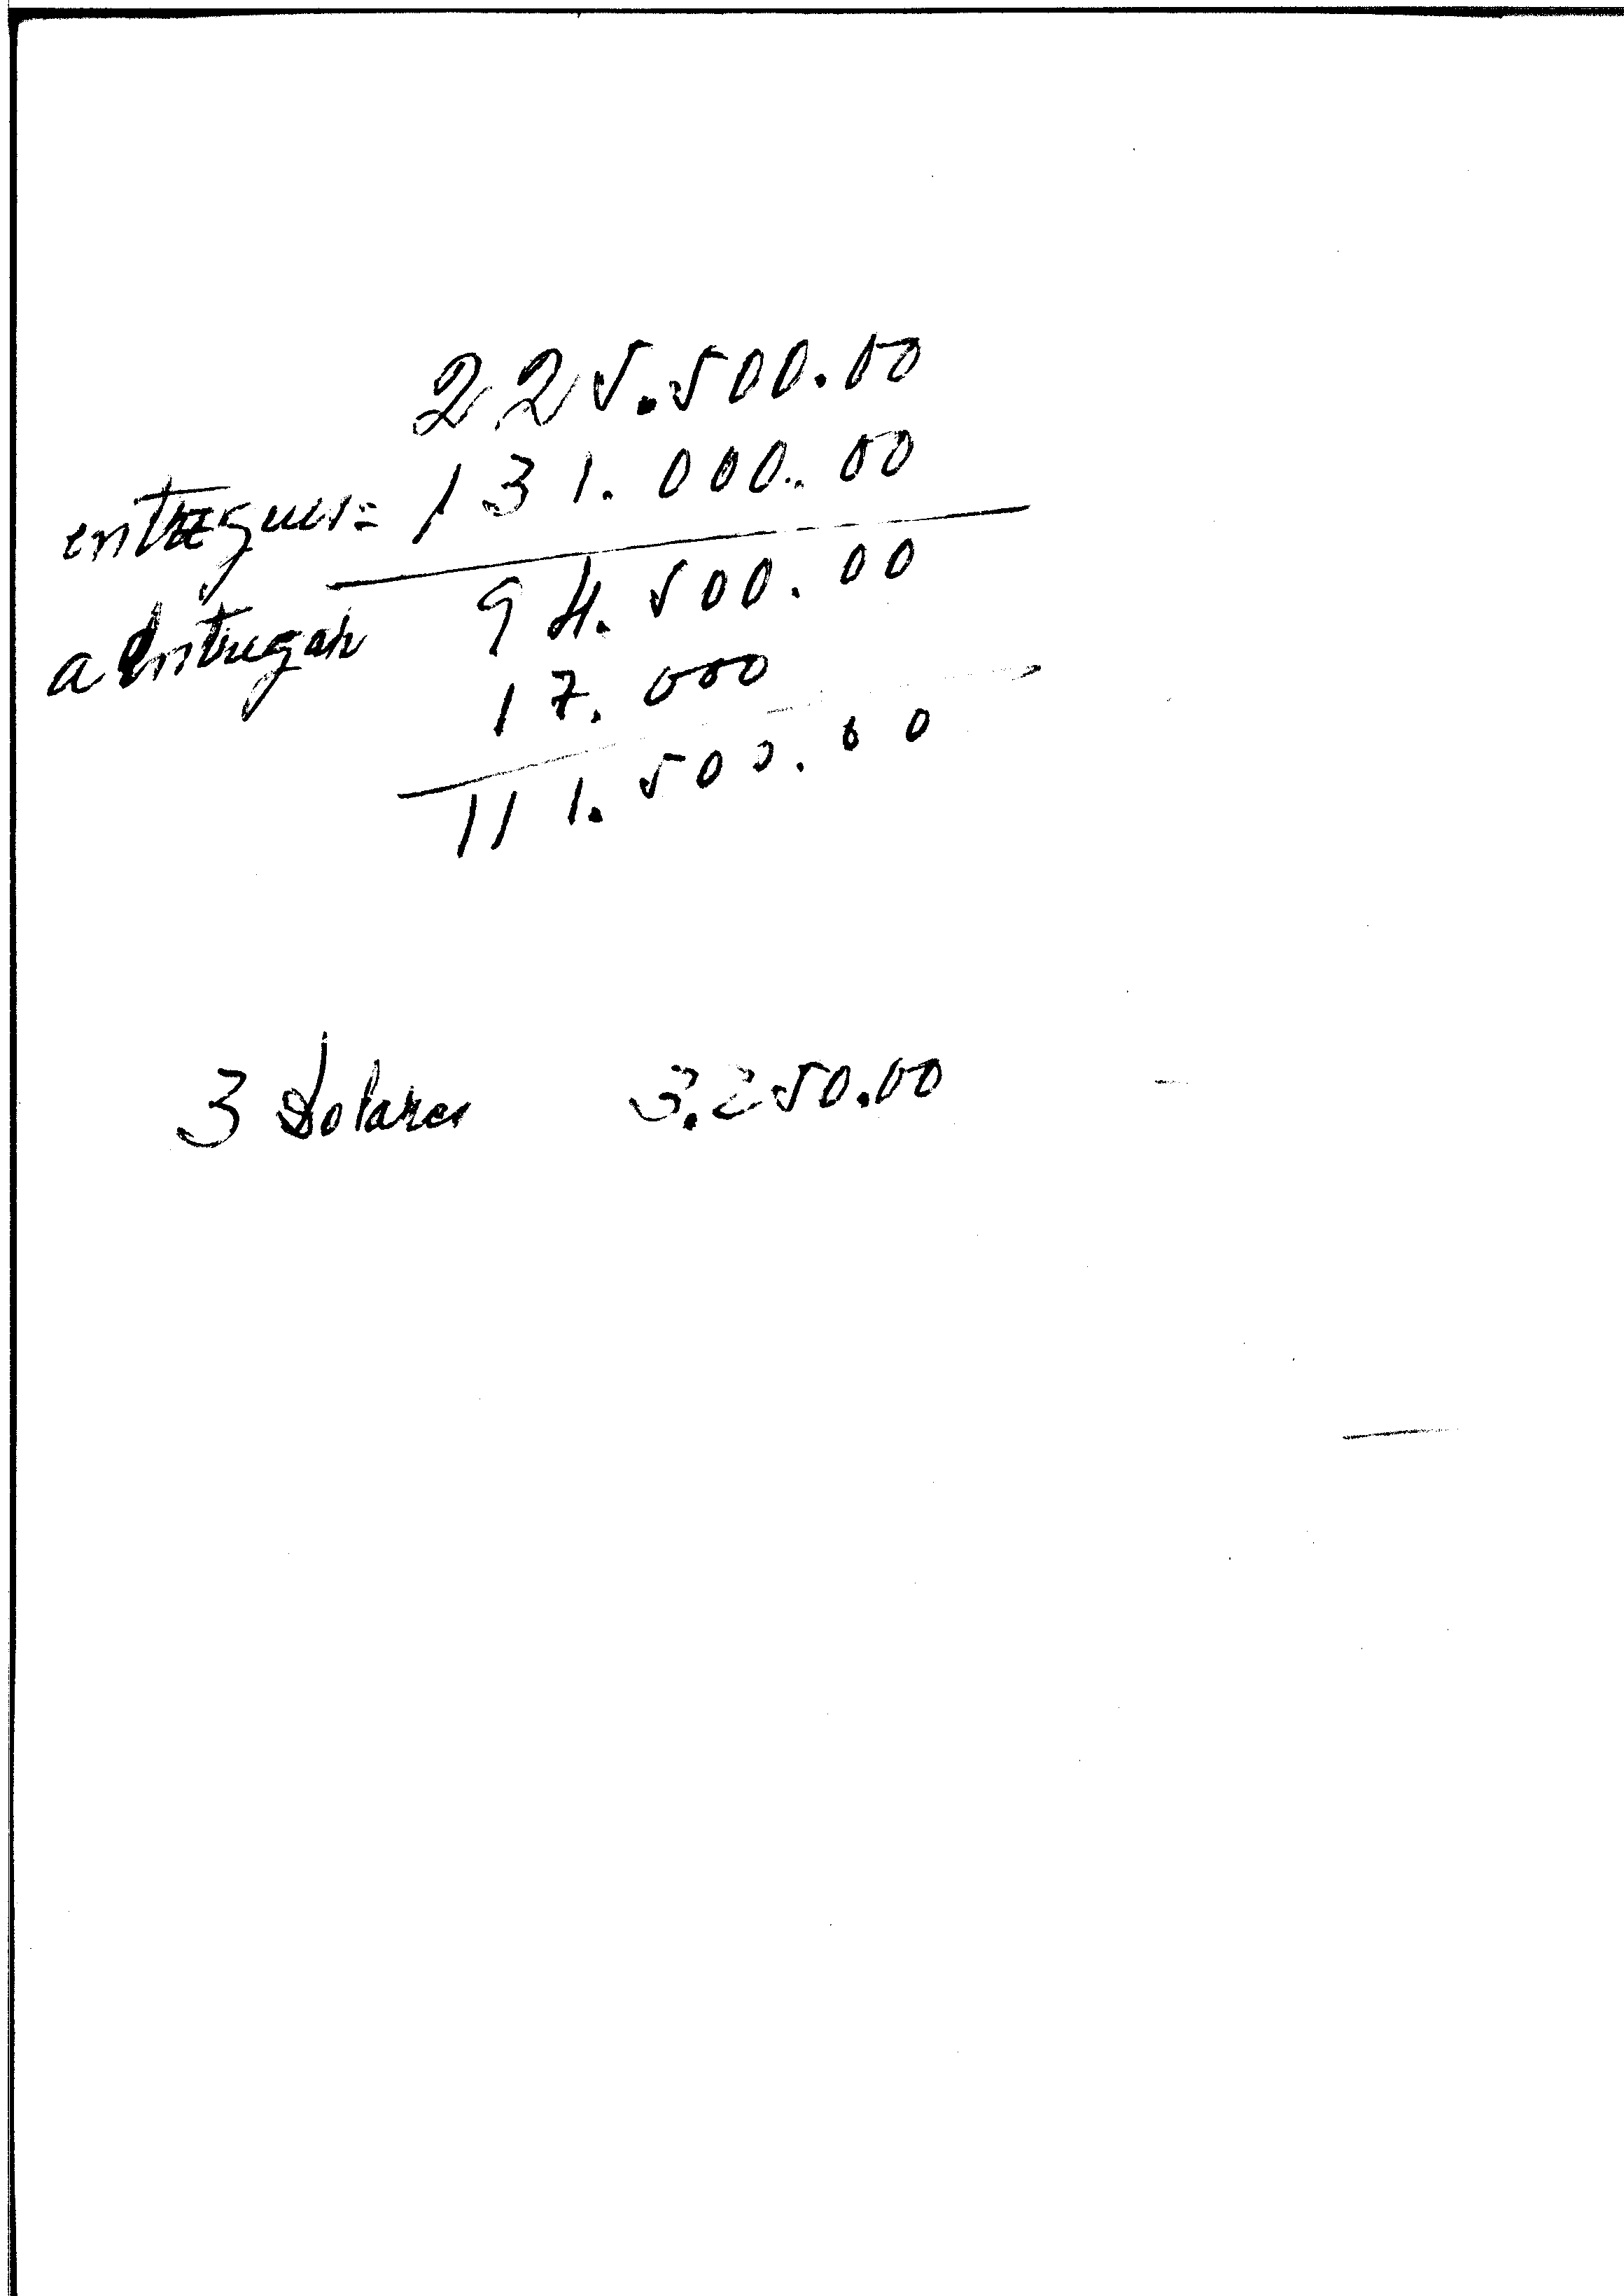 225.500.00
entregues = 131.000.00
a entregar 94.500.00
17.000
111.500.00
3 Dolares 3.250.00